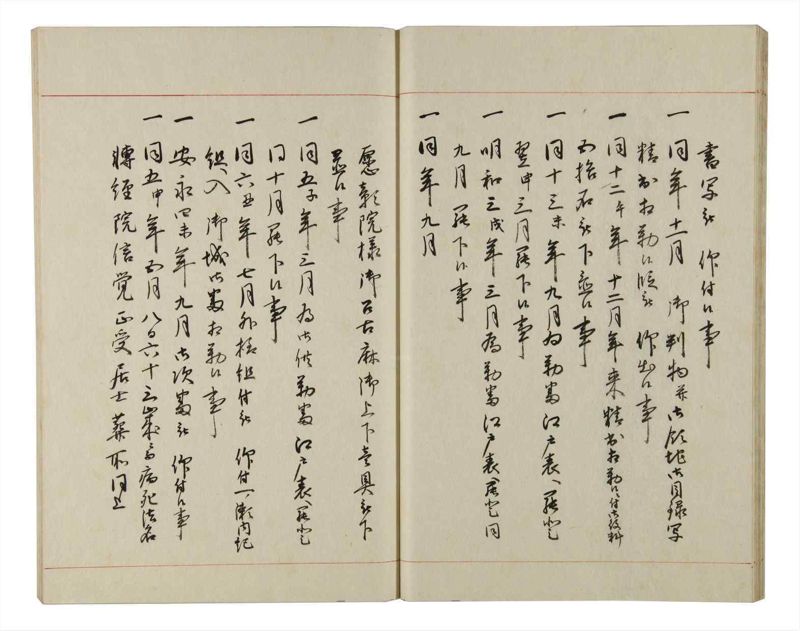 書写被 仰付候事
一 同年十一月 御判物并御領地御目録写
精出相勤候段被 仰出候事
一 同十二午年十二月年来精出相勤候付御役料
五拾石被下置候事
一 同十三未年九月為勤番江戸表へ罷登
翌申三月罷下候事
一 明和三戌年三月為勤番江戸表罷登同
九月罷下候事
一 同年九月
愿彰院様御召古麻御上下壱具被下
置候事
一 同五子年三月為御供勤番江戸表へ罷登
同十月罷下候事
一 同六丑年七月外様組付被 仰付一ノ瀬内記
組へ入 御城御番相勤候事
一 安永四未年九月御次番被 仰付候事
一 同五申年五月八日六十三歳ニ而病死法名
轉経院信覚正受居士葬所同上